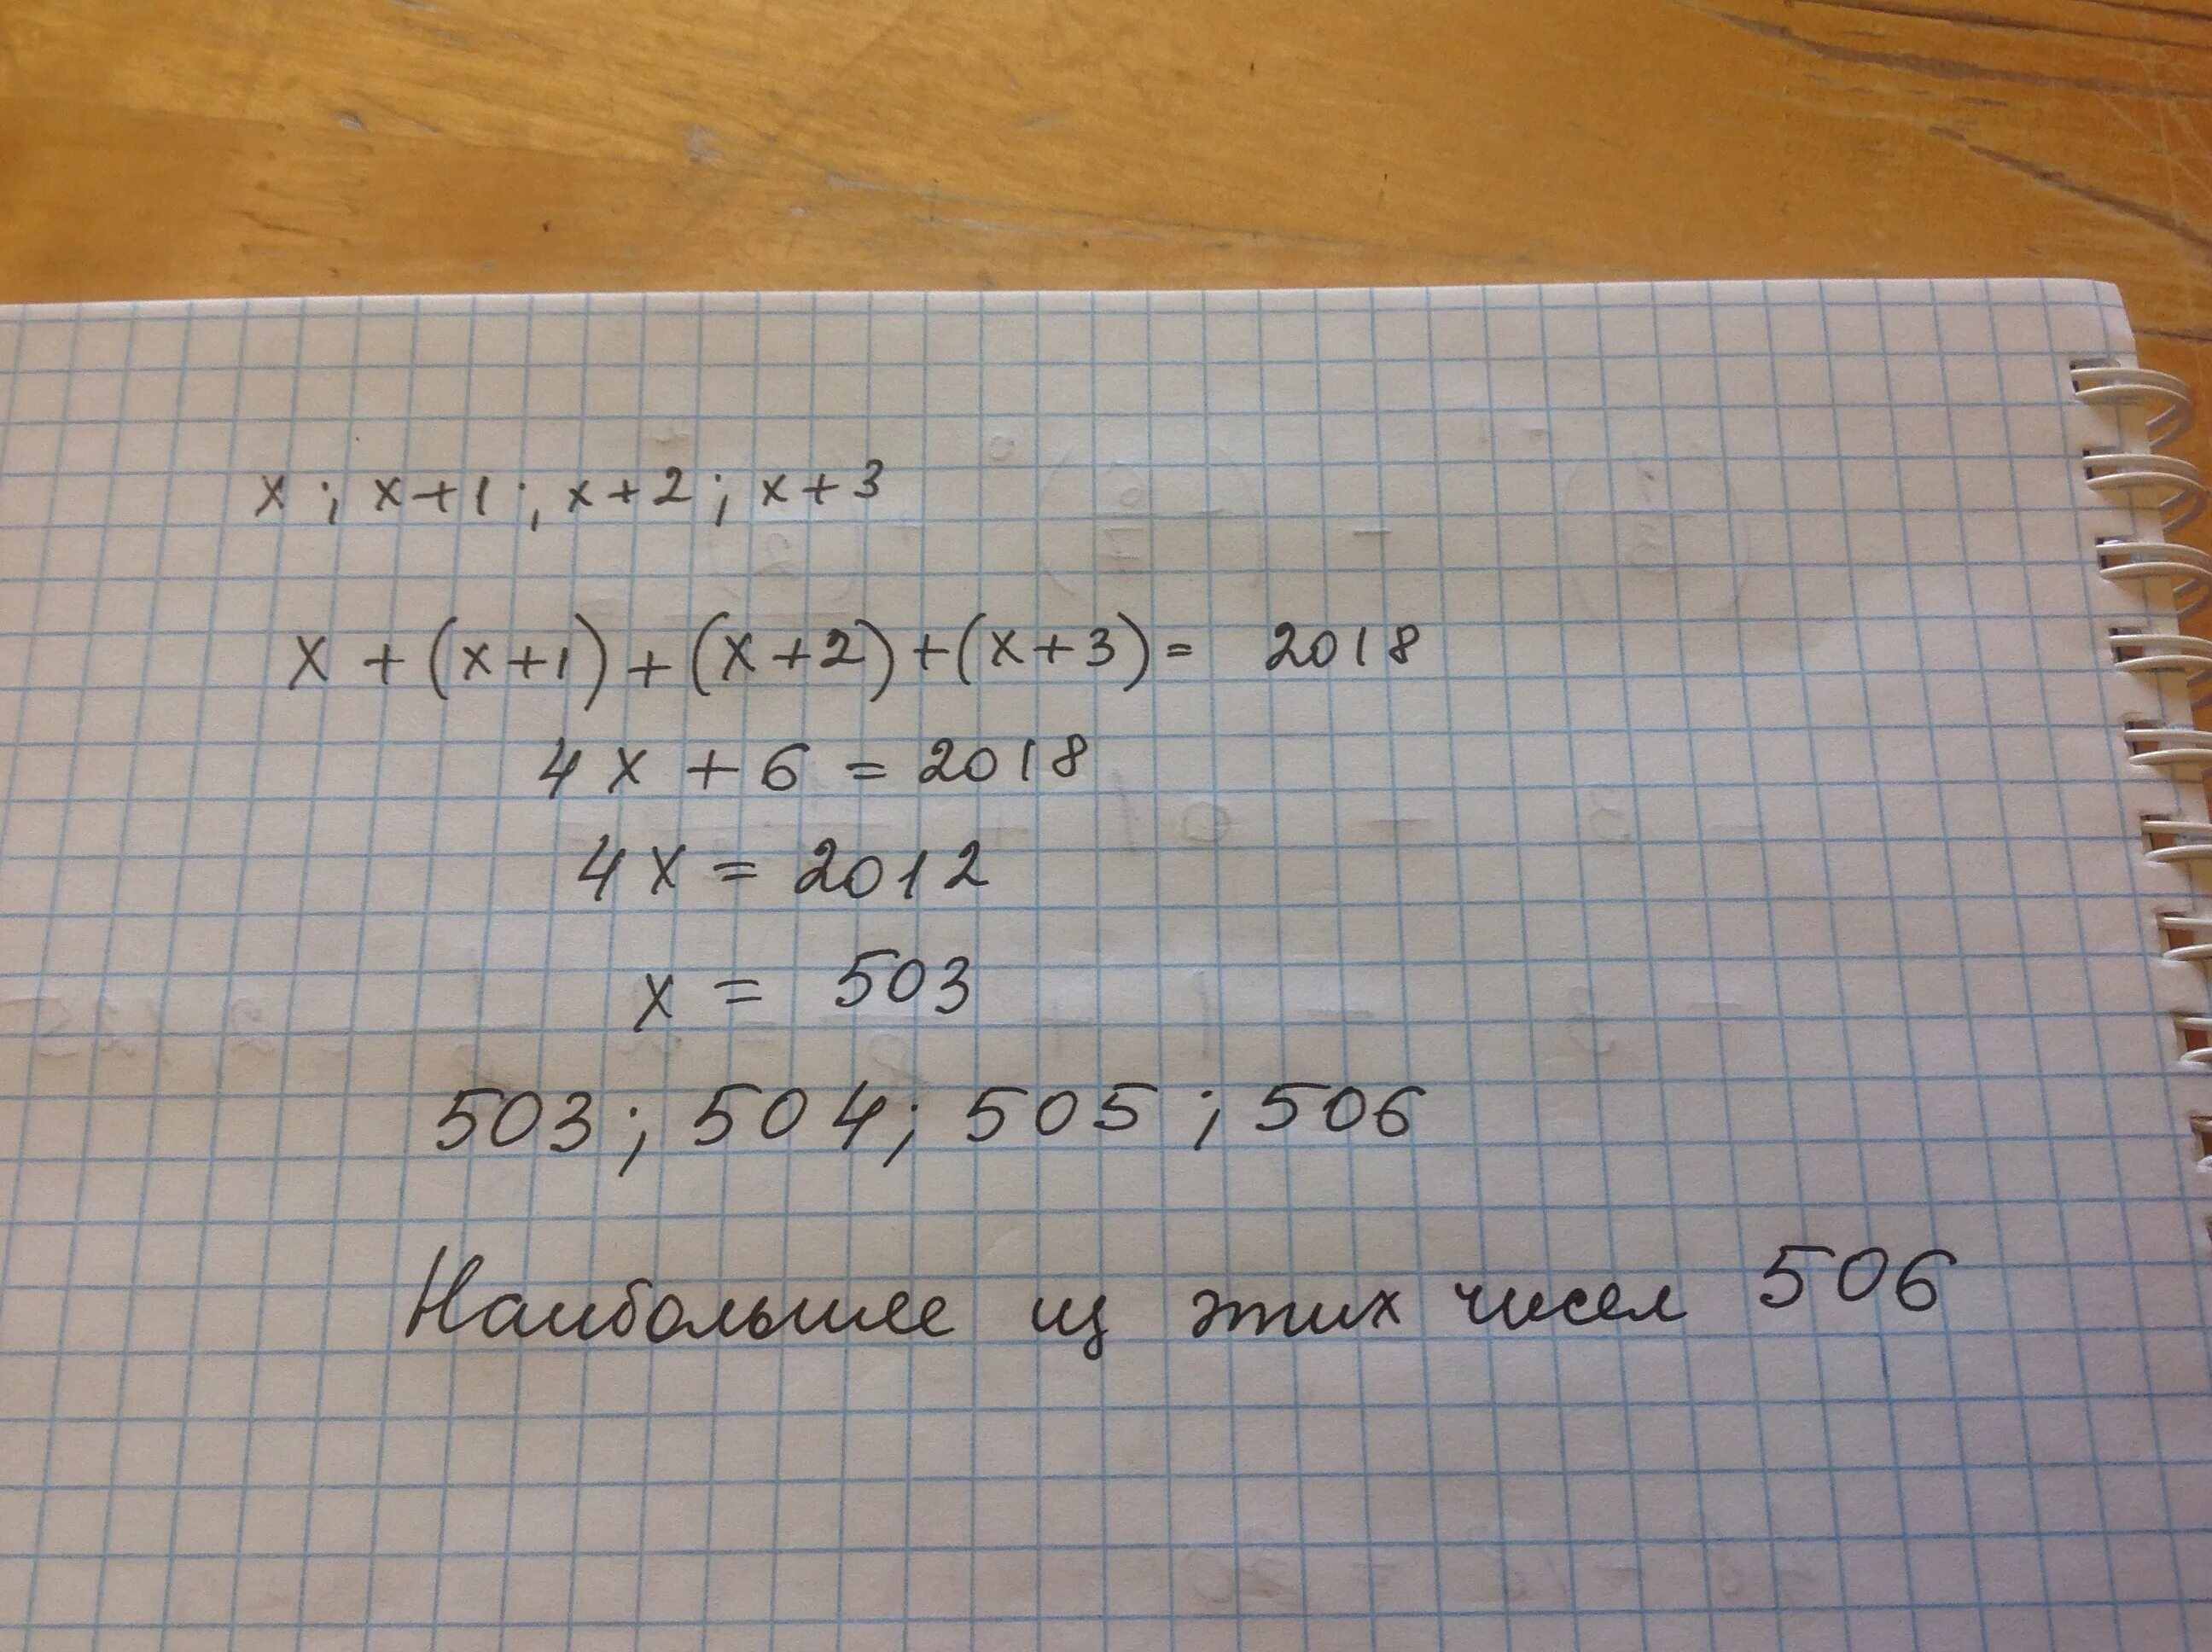 x; x+1; x+2; x+3
x + (x+1) + (x+2) + (x+3) = 2018
4x + 6 = 2018
4x = 2012
x = 503
503; 504; 505; 506
Наибольшее из этих чисел 506